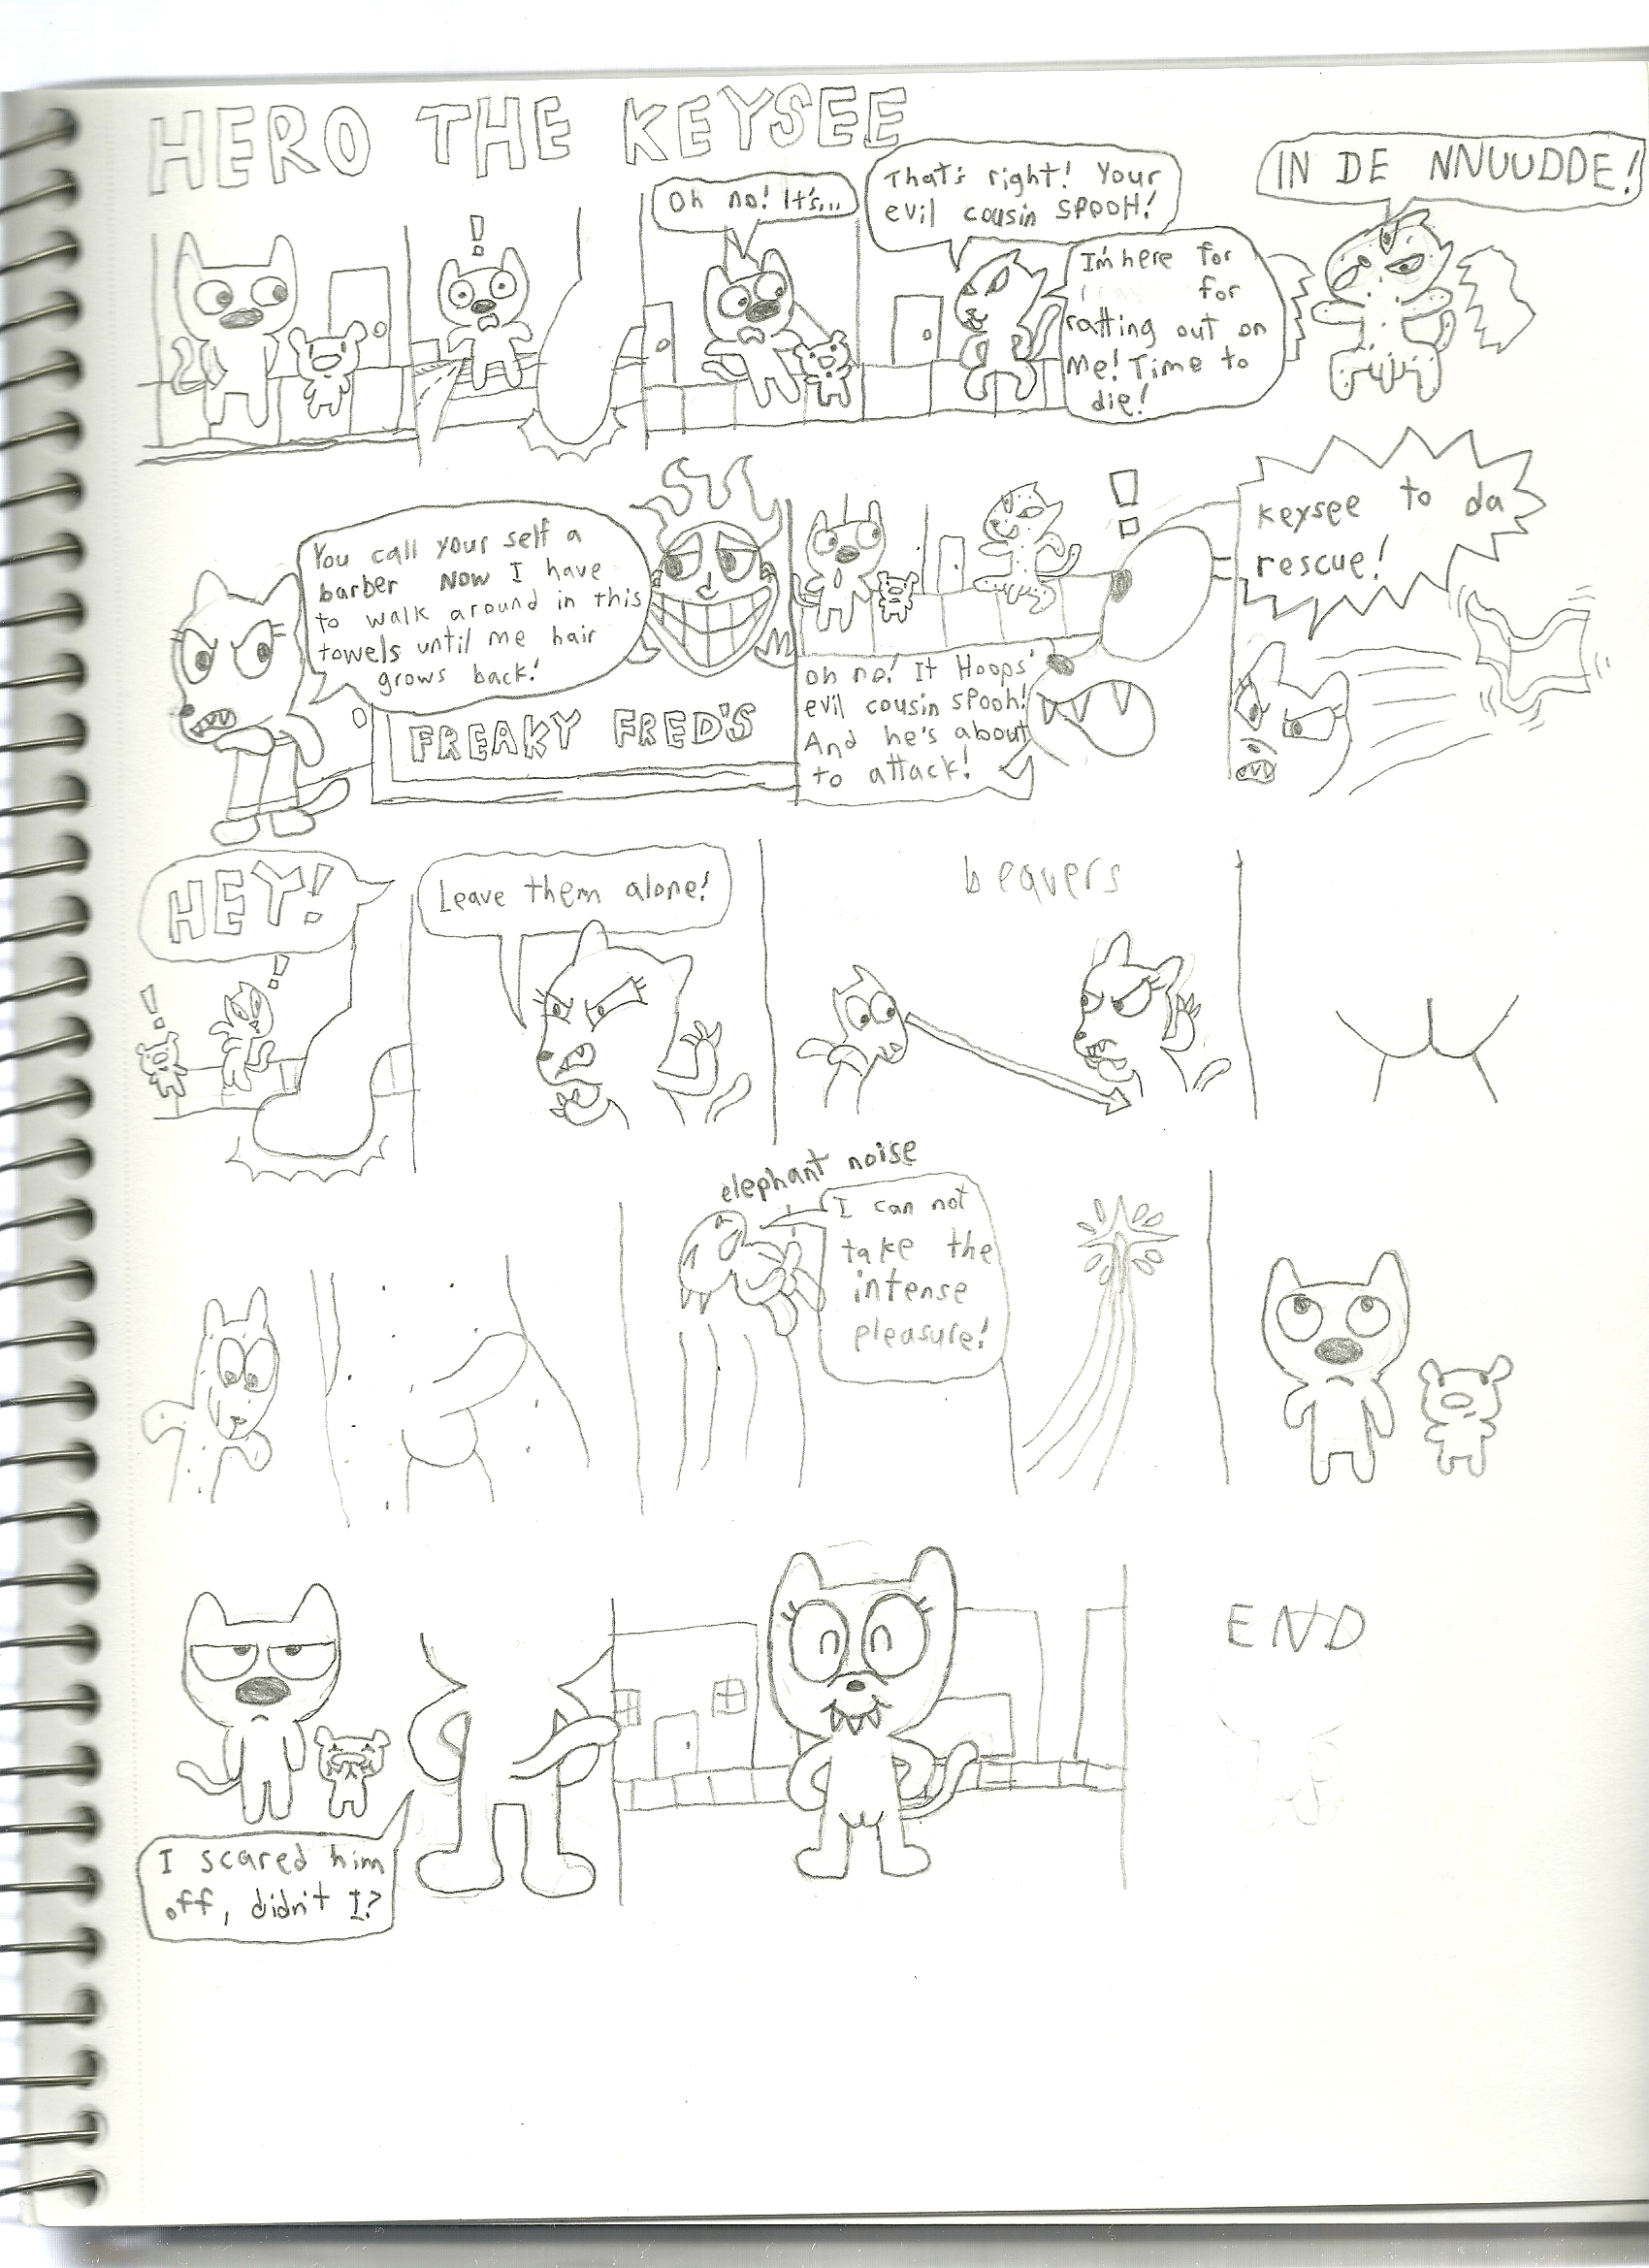 HERO THE KEYSEE
Oh no! It's...
That's right! Your
evil cousin SPOOH!
I'm here for
for
ratting out on
me! Time to
die!
IN DE NNUUDDE!
You call your self a
barber NOW I have
to walk around in this
towels until me hair
grows back!
FREAKY FRED'S
oh no! It Hoops'
evil cousin spooh!
And he's about
to attack!
keysee to da
rescue!
HEY!
Leave them alone!
beavers
elephant noise
I can not
take the
intense
pleasure!
I scared him
off, didn't I?
END